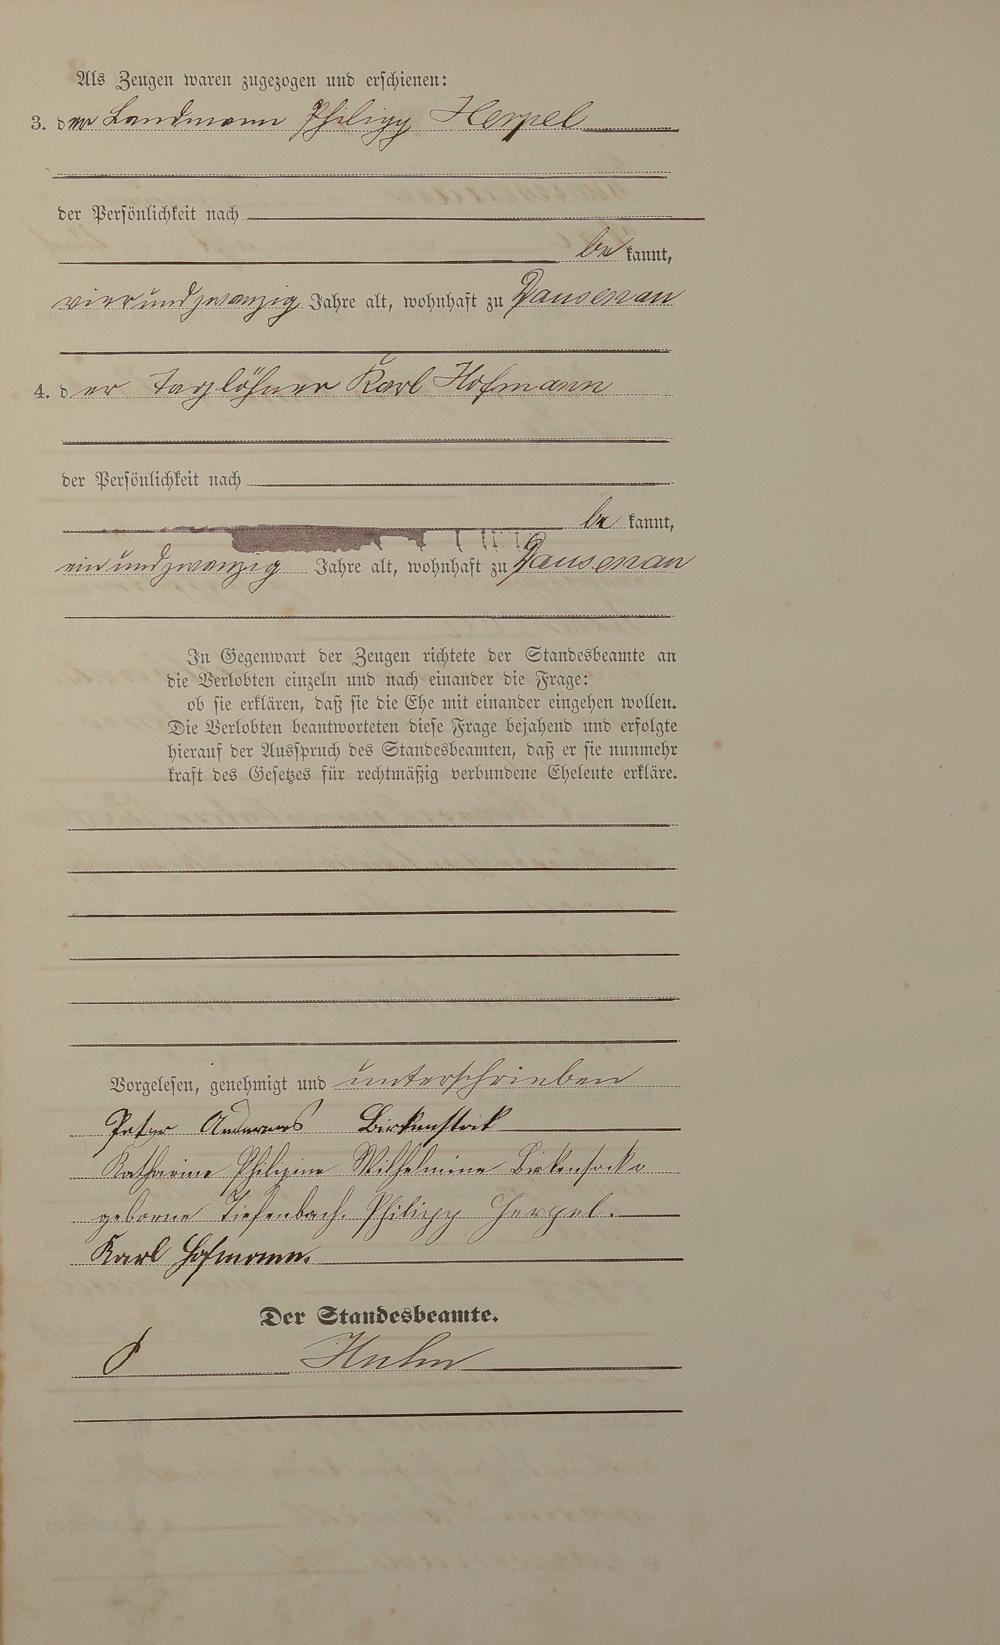 Als Zeugen waren zugezogen und erschienen:
3. der Landmann Philipp Herpel
der Persönlichkeit nach
be kannt,
vierundzwanzig Jahre alt, wohnhaft zu Dausenau
4. der Taglöhner Karl Hofmann
der Persönlichkeit nach
be kannt,
einundzwanzig Jahre alt, wohnhaft zu Dausenau
In Gegenwart der Zeugen richtete der Standesbeamte an
die Verlobten einzeln und nach einander die Frage:
ob sie erklären, daß sie die Ehe mit einander eingehen wollen.
Die Verlobten beantworteten diese Frage bejahend und erfolgte
hierauf der Ausspruch des Standesbeamten, daß er sie nunmehr
kraft des Gesetzes für rechtmäßig verbundene Eheleute erkläre.
Vorgelesen, genehmigt und unterschrieben
Peter Andreas Birkenstock
Katharine Philipine Wilhelmine Birkenstock
geborne Tiefenbach. Philipp Herpel.
Karl Hofmann.
Der Standesbeamte.
Huhn